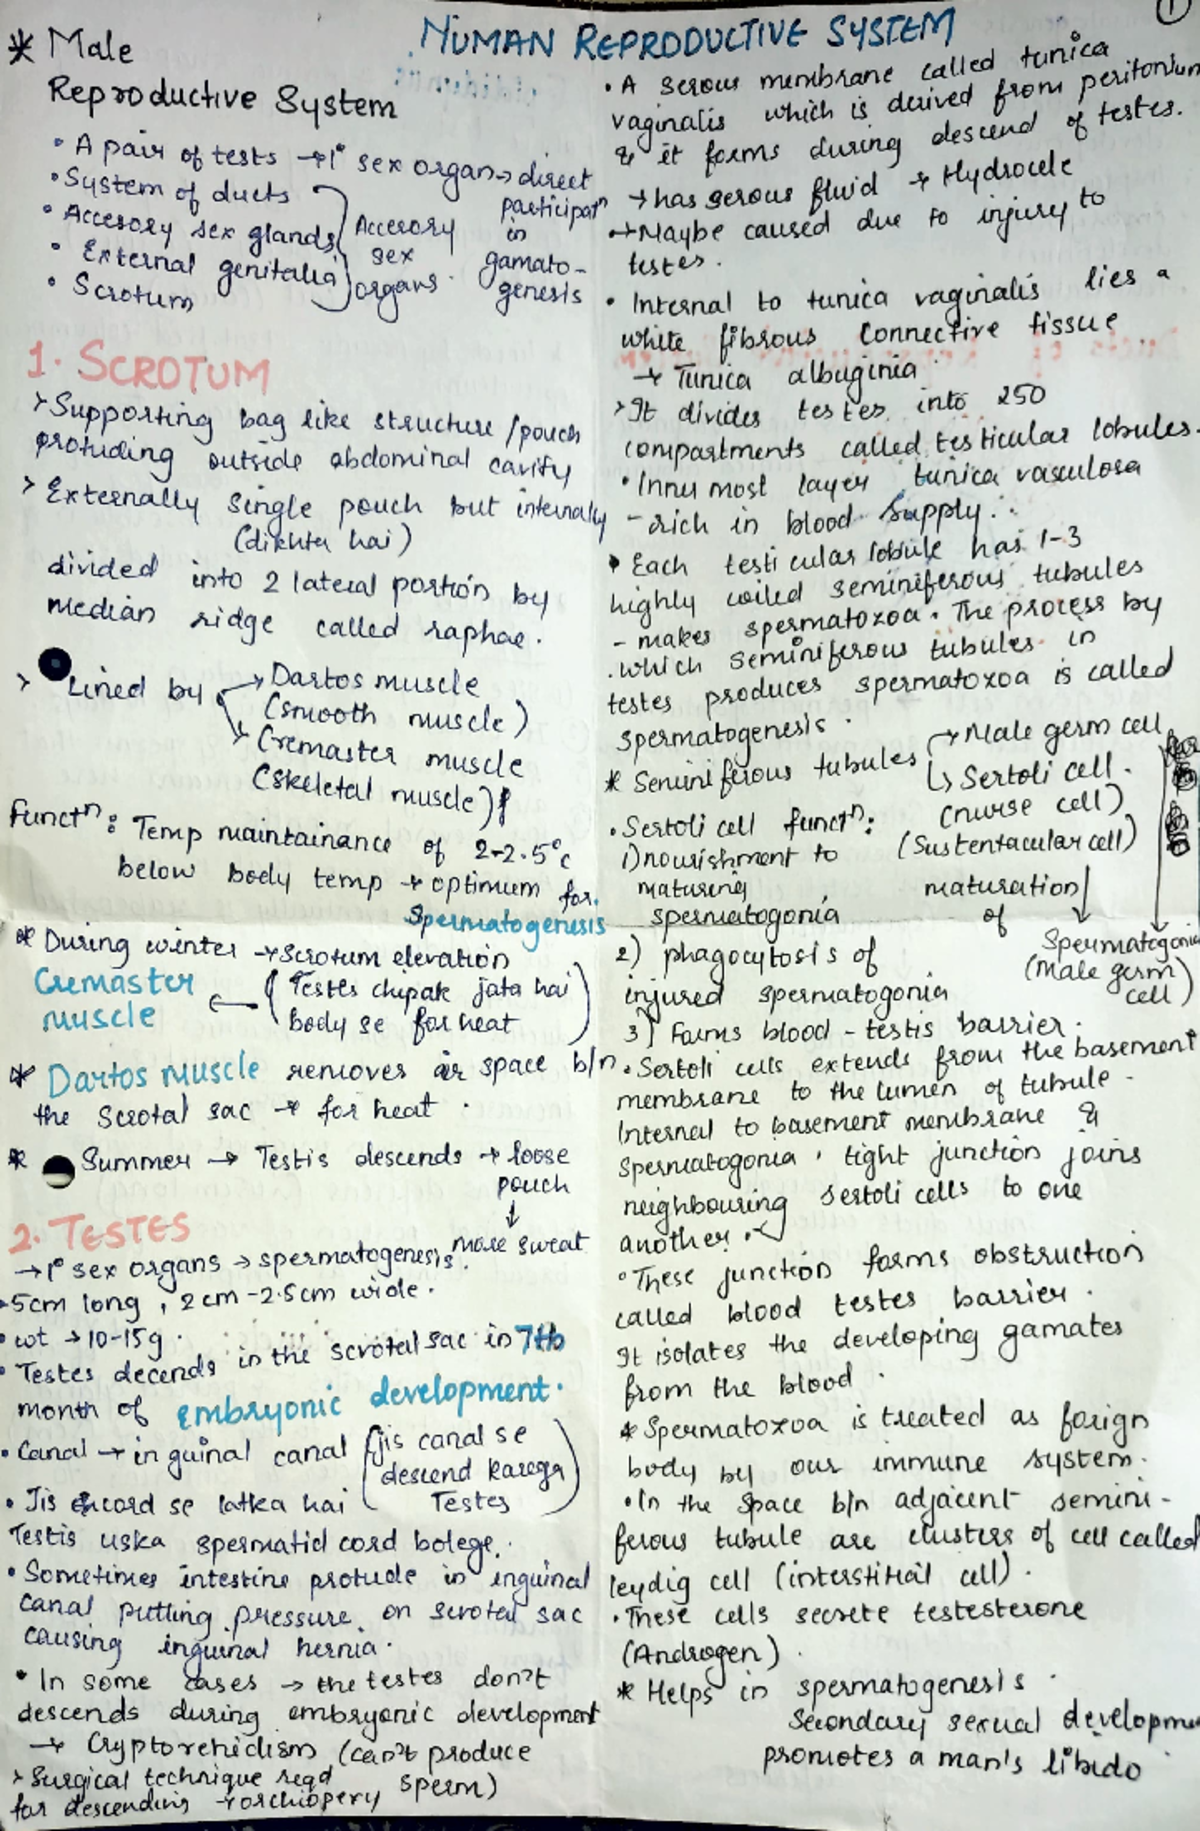 HUMAN REPRODUCTIVE SYSTEM
1
* Male
Reproductive System
• A pair of tests → 1° sex organ → direct
participatn
in
gamato-
genesis
• System of ducts
• Accesory sex glands
• External genitalia
• Scrotum
Accesory
sex
organs.
1. SCROTUM
> Supporting bag like structure / pouch
protuding outside abdominal cavity
> Externally single pouch but internally
(dikhta hai)
divided into 2 lateral portion by
median ridge called raphae.
> Lined by → Dartos muscle
(smooth muscle)
→ Cremaster muscle
(skeletal muscle)
Functn: Temp maintainance of 2-2.5°c
below body temp → optimum for
spermatogenesis
* During winter → Scrotum elevation
Cremaster
muscle
← (Testes chipak jata hai
body se for heat)
* Dartos muscle removes air space b/n
the scrotal sac → for heat.
* Summer → Testis descends → loose
pouch
↓
more sweat
2. TESTES
→ 1° sex organs → spermatogenesis.
• 5cm long, 2cm-2.5cm wide.
• wt → 10-15g.
• Testes decends in the scrotal sac in 7th
month of embryonic development.
• Canal → inguinal canal (jis canal se
descend karega
Testes)
• Jis cord se latka hai
Testis uska spermatid cord bolege.
• Sometimes intestine protude in inguinal
canal putting pressure on scrotal sac
causing inguinal hernia.
• In some cases → the testes don't
descends during embryonic development
→ Cryptorchidism (can't produce
sperm)
> Surgical technique reqd
for descending → orchiopery
• A serous membrane called tunica
vaginalis which is derived from peritonium
& it forms during descend of testes.
→ has serous fluid → Hydrocele
→ Maybe caused due to injury to
testes.
• Internal to tunica vaginalis lies a
white fibrous connective tissue
→ Tunica albuginia.
> It divides testes into 250
compartments called testicular lobules.
• Inner most layer tunica vasculosa
- rich in blood supply.
• Each testicular lobule has 1-3
highly coiled seminiferous tubules
- makes spermatoxoa. The process by
which seminiferous tubules in
testes produces spermatoxoa is called
spermatogenesis.
* Seminiferous tubules → Male germ cell
↳ Sertoli cell.
(nurse cell)
(Sustentacular cell)
• Sertoli cell functn:
1) nourishment to
maturing
spermatogonia
maturation
of
Spermatogonia
(Male germ
cell)
2) phagocytosis of
injured spermatogonia
3) Forms blood-testis barrier.
• Sertoli cells extends from the basement
membrane to the lumen of tubule.
Internal to basement membrane &
spermatogonia, tight junction joins
neighbouring sertoli cells to one
another.
• These junction forms obstruction
called blood testes barrier.
It isolates the developing gamates
from the blood.
* Spermatoxoa is treated as forign
body by our immune system.
• In the space b/n adjacent semini-
ferous tubule are clusters of cell called
leydig cell (interstitial cell).
• These cells secrete testesterone
(Androgen).
* Helps in spermatogenesis.
Secondary sexual developme
promotes a man's libido